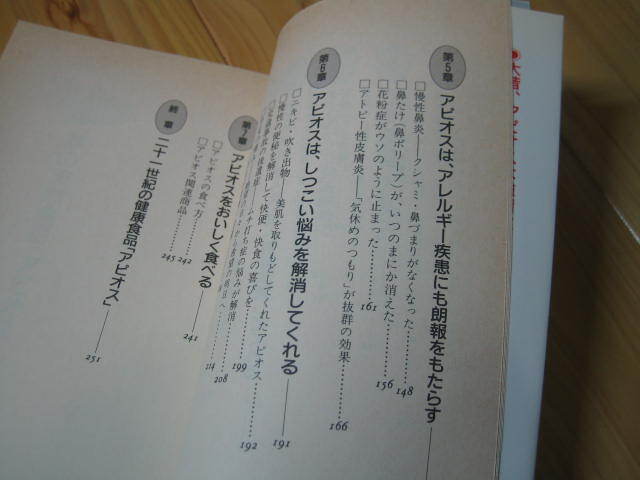 第5章
アピオスは、アレルギー疾患にも朗報をもたらす
□慢性鼻炎——クシャミ・鼻づまりがなくなった……148
□鼻たけ(鼻ポリープ)が、いつのまにか消えた……156
□花粉症がウソのように止まった……161
□アトピー性皮膚炎——「気休めのつもり」が抜群の効果……166
第6章
アピオスは、しつこい悩みを解消してくれる——191
□ニキビ・吹き出物——美肌を取りもどしてくれたアピオス……192
□慢性の便秘を解消して快便・快食の喜びを……199
打ち症の悩みが解消……208
214
第7章
アピオスをおいしく食べる——241
□アピオスの食べ方……242
□アピオス関連商品……245
終章
二十一世紀の健康食品「アピオス」——251